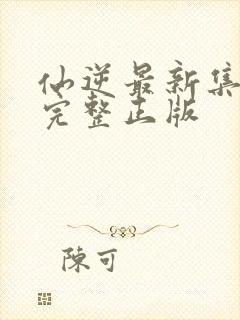 仙逆最新集
完整正版
陳可